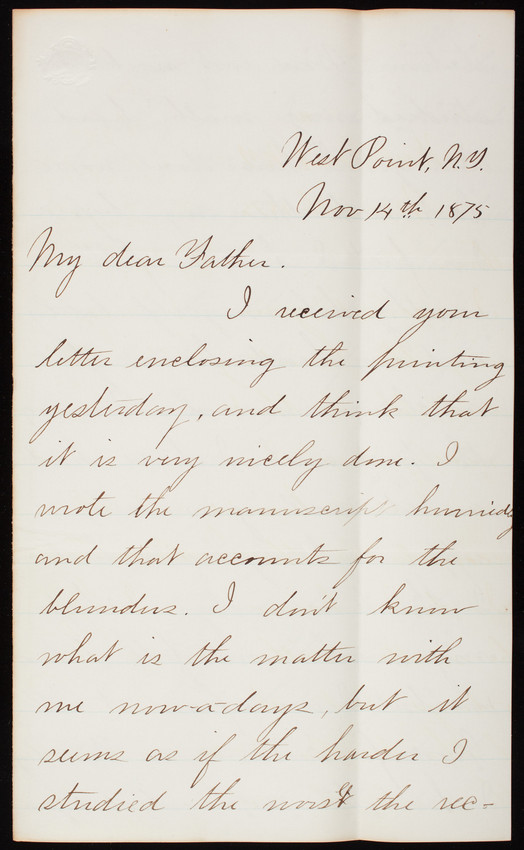 West Point, N.Y.
Nov 14th 1875
My dear Father.
I received your
letter enclosing the printing
yesterday, and think that
it is very nicely done. I
wrote the manuscript hurriedly
and that accounts for the
blunders. I don't know
what is the matter with
me now-a-days, but it
seems as if the harder I
studied the worst the rec-